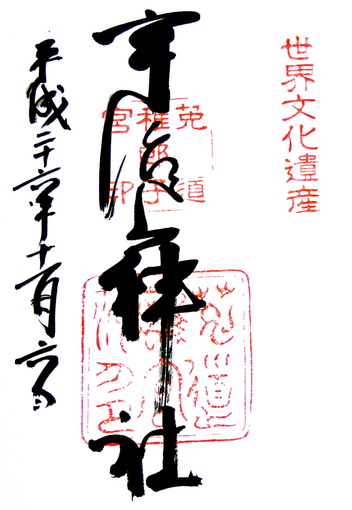 世界文化遺産
菟道
稚郎子
宮印
宇治上神社
菟道
平成二十六年十一月六日